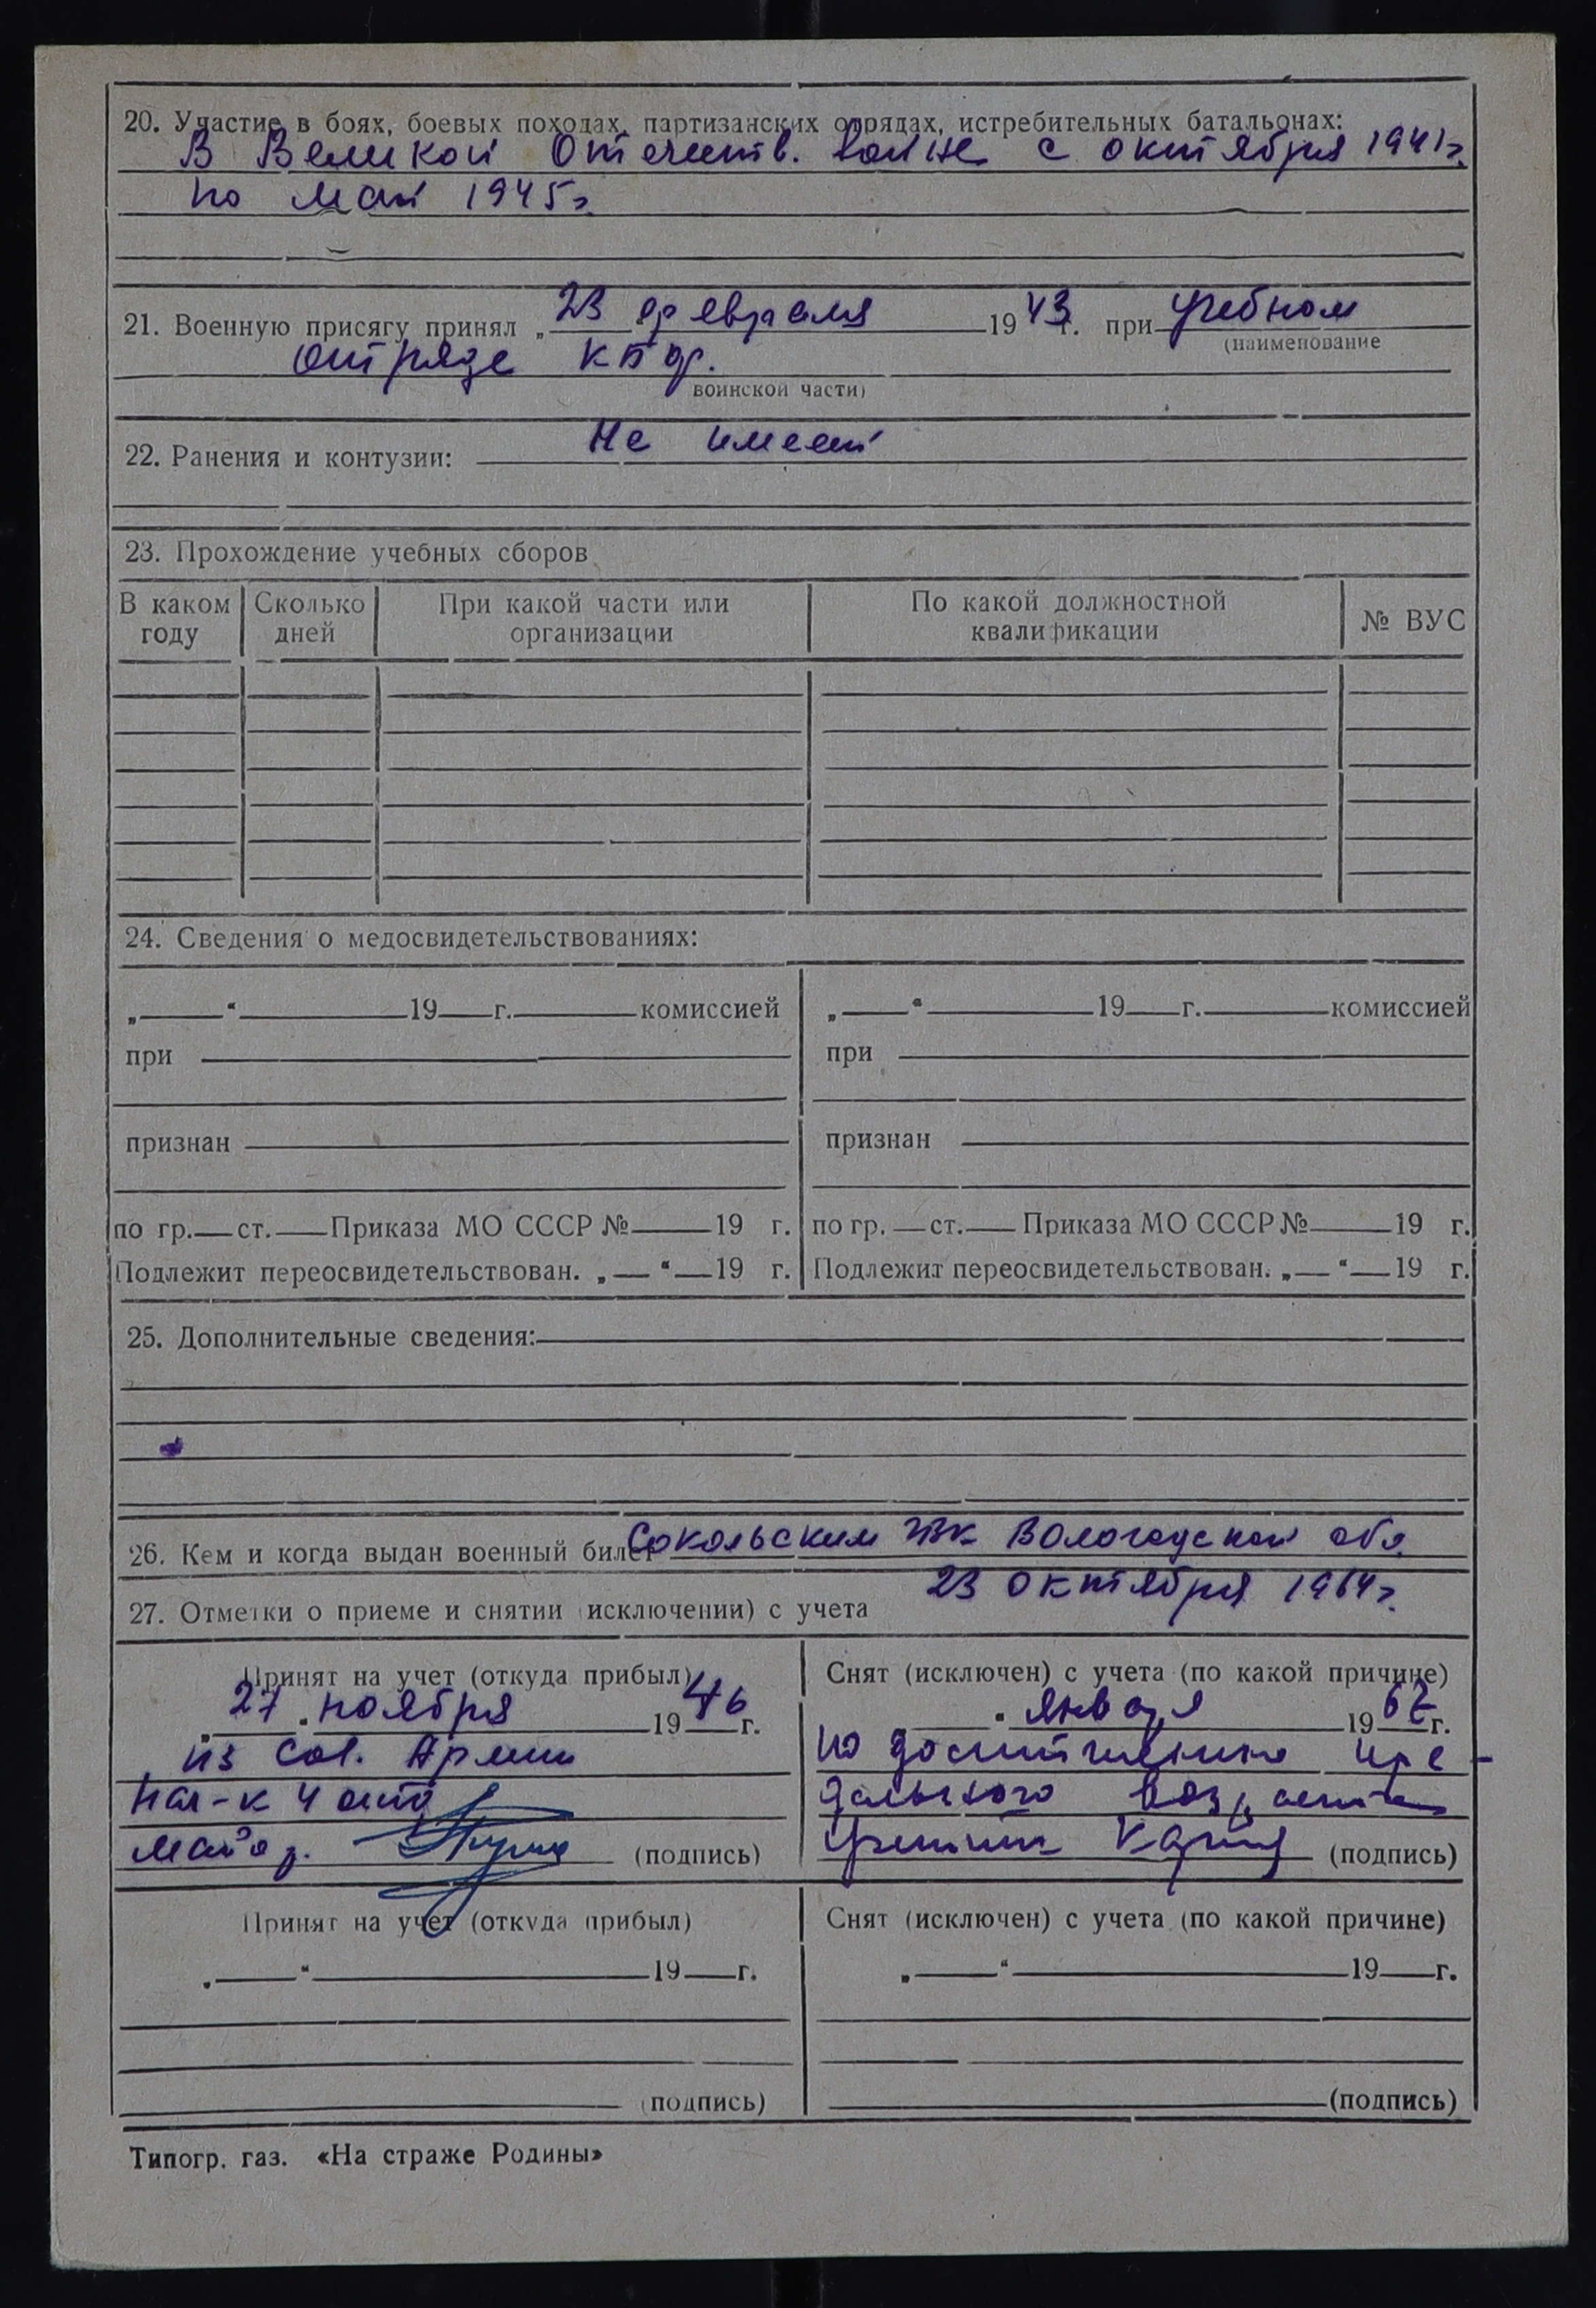 20. Участие в боях, боевых походах, партизанских отрядах, истребительных батальонах:
В Великой Отечеств. войне с октября 1941г.
по май 1945г.
21. Военную присягу принял „ 23 февраля 1943 г. при учебном
(наименование
отряде КБФ.
воинской части)
22. Ранения и контузии: Не имеет
23. Прохождение учебных сборов
В каком году Сколько дней При какой части или организации По какой должностной квалификации № ВУС
24. Сведения о медосвидетельствованиях:
„ “ 19 г. комиссией „ “ 19 г. комиссией
при при
признан признан
по гр. ст. Приказа МО СССР № 19 г. по гр. ст. Приказа МО СССР № 19 г.
Подлежит переосвидетельствован. „ “ 19 г. Подлежит переосвидетельствован. „ “ 19 г.
25. Дополнительные сведения:
26. Кем и когда выдан военный билет Сокольским Вологодской обл.
23 октября 1964г.
27. Отметки о приеме и снятии (исключении) с учета
Принят на учет (откуда прибыл)
27 ноября 1946 г.
из Сов. Армии
Нач-к 4
майор (подпись)
Снят (исключен) с учета (по какой причине)
января 19 г.
по достижению пре-
дельного возраста
(подпись)
Принят на учет (откуда прибыл) Снят (исключен) с учета (по какой причине)
„ “ 19 г. „ “ 19 г.
(подпись) (подпись)
Типогр. газ. «На страже Родины»